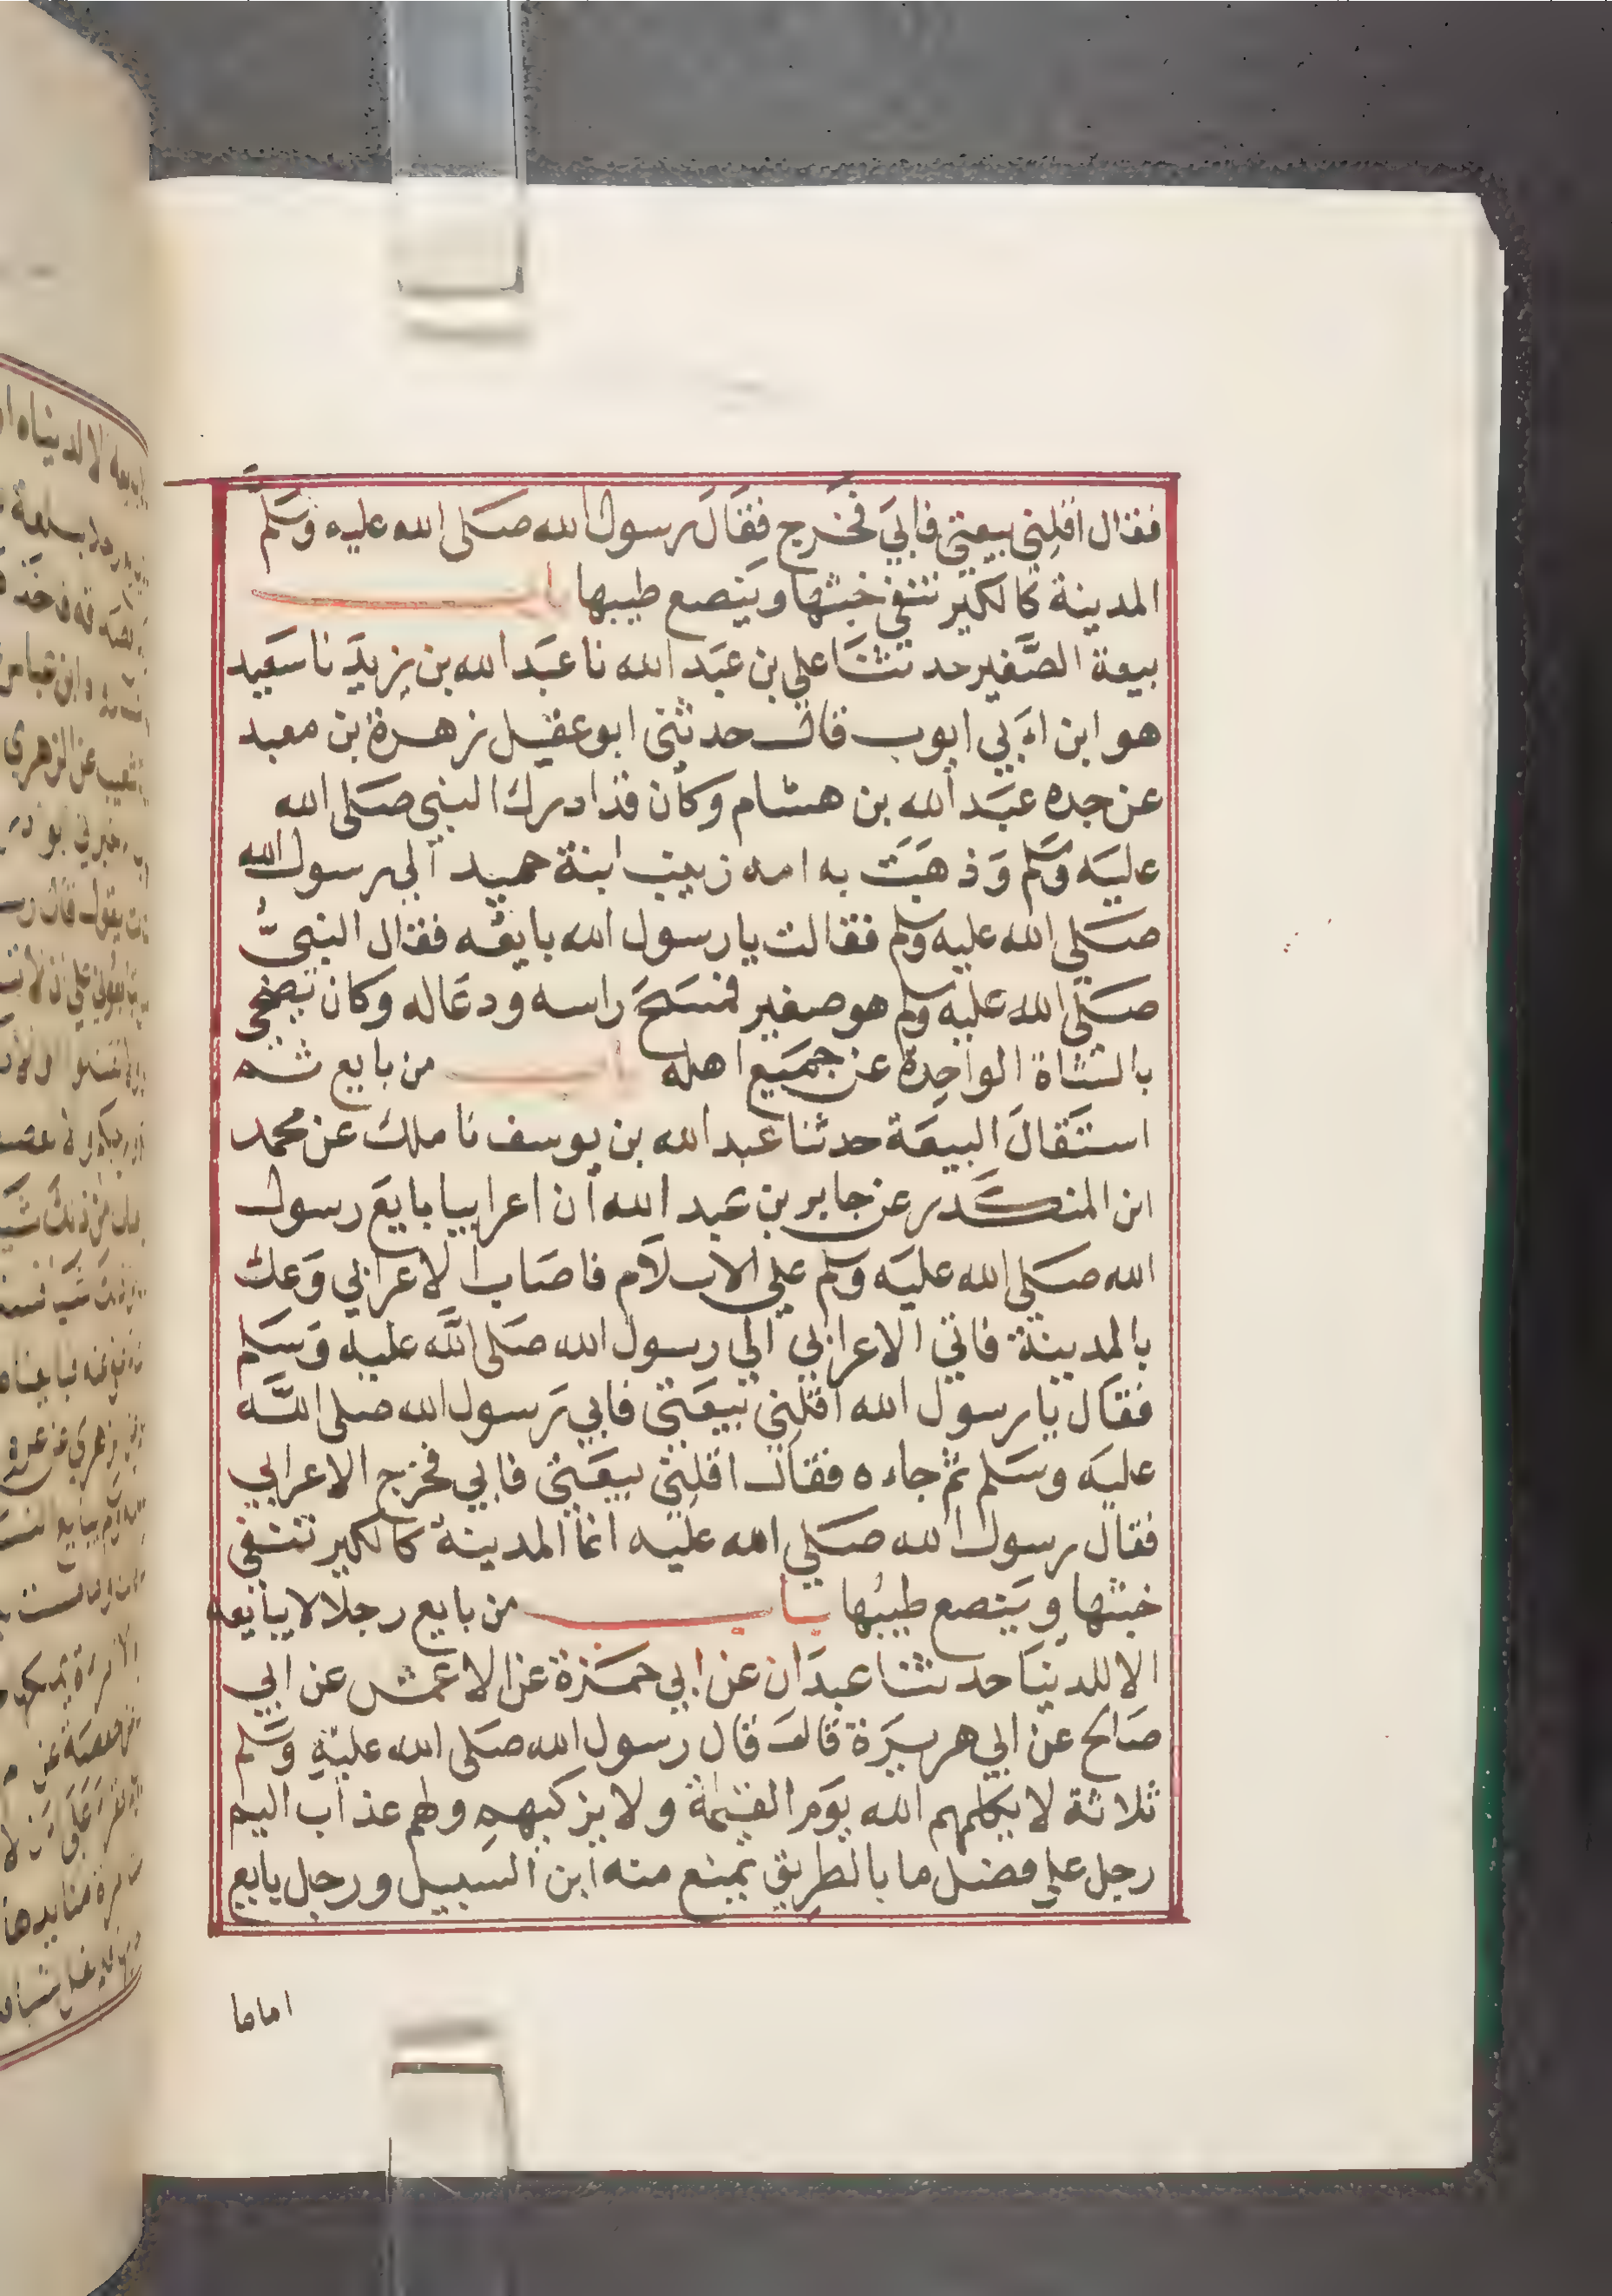 فقال اقلني بيعتي فابي فخرج فقال رسول الله صلى الله عليه وسلم
المدينة كالكير تنفي خبثها وينصع طيبها باب
بيعة الصغير حدثنا علي بن عبد الله نا عبد الله بن يزيد نا سعيد
هو ابن ابي ايوب قال حدثني ابو عقيل زهرة بن معبد
عن جده عبد الله بن هشام وكان قد ادرك النبي صلى الله
عليه وسلم وذهبت به امه زينب ابنة حميد الي رسول الله
صلي الله عليه وسلم فقالت يا رسول الله بايعه فقال النبي
صلي الله عليه وسلم هو صغير فمسح راسه ودعا له وكان يضحي
بالشاة الواحدة عن جميع اهله باب من بايع ثم
استقال البيعة حدثنا عبد الله بن يوسف نا ملك عن محمد
ابن المنكدر عن جابر بن عبد الله ان اعرابيا بايع رسول
الله صلي الله عليه وسلم علي الاسلام فاصاب الاعرابي وعك
بالمدينة فاتي الاعرابي الي رسول الله صلى الله عليه وسلم
فقال يا رسول الله اقلني بيعتي فابي رسول الله صلى الله
عليه وسلم ثم جاءه فقال اقلني بيعتي فابي فخرج الاعرابي
فقال رسول الله صلي الله عليه انما المدينة كالكير تنفي
خبثها وينصع طيبها باب من بايع رجلا لا يبايعه
الا للدنيا حدثنا عبدان عن ابي حمزة عن الاعمش عن ابي
صالح عن ابي هريرة قال قال رسول الله صلى الله عليه وسلم
ثلاثة لا يكلمهم الله يوم القيمة ولا يزكيهم ولهم عذاب اليم
رجل علي فضل ما بالطريق يمنع منه ابن السبيل ورجل بايع
اماما